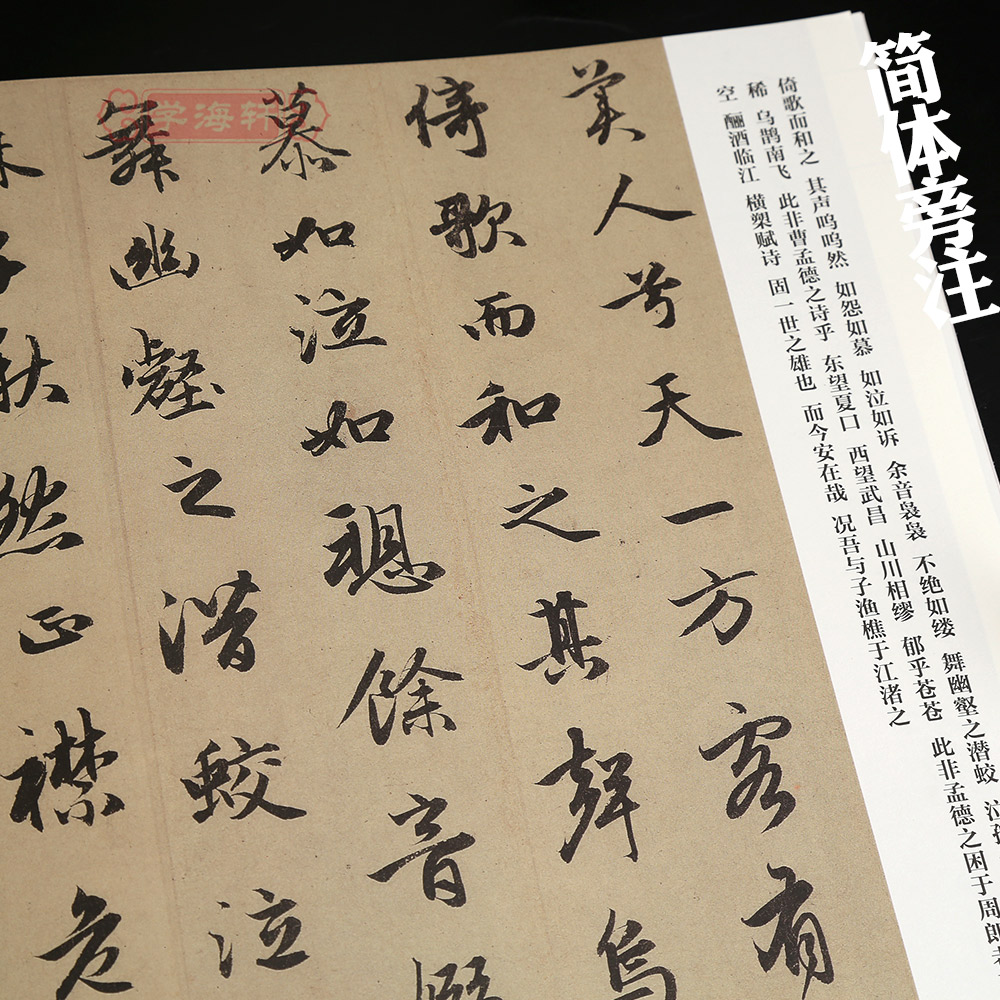 简体旁注
学海轩
倚歌而和之 其声呜呜然 如怨如慕 如泣如诉 余音袅袅 不绝如缕 舞幽壑之潜蛟 泣
稀 乌鹊南飞 此非曹孟德之诗乎 东望夏口 西望武昌 山川相缪 郁乎苍苍 此非孟德之困于周郎
空 酾酒临江 横槊赋诗 固一世之雄也 而今安在哉 况吾与子渔樵于江渚之
美人兮天一方客有
倚歌而和之其聲嗚
慕如泣如餘音
舞幽壑之潛蛟泣
子愀然正襟危